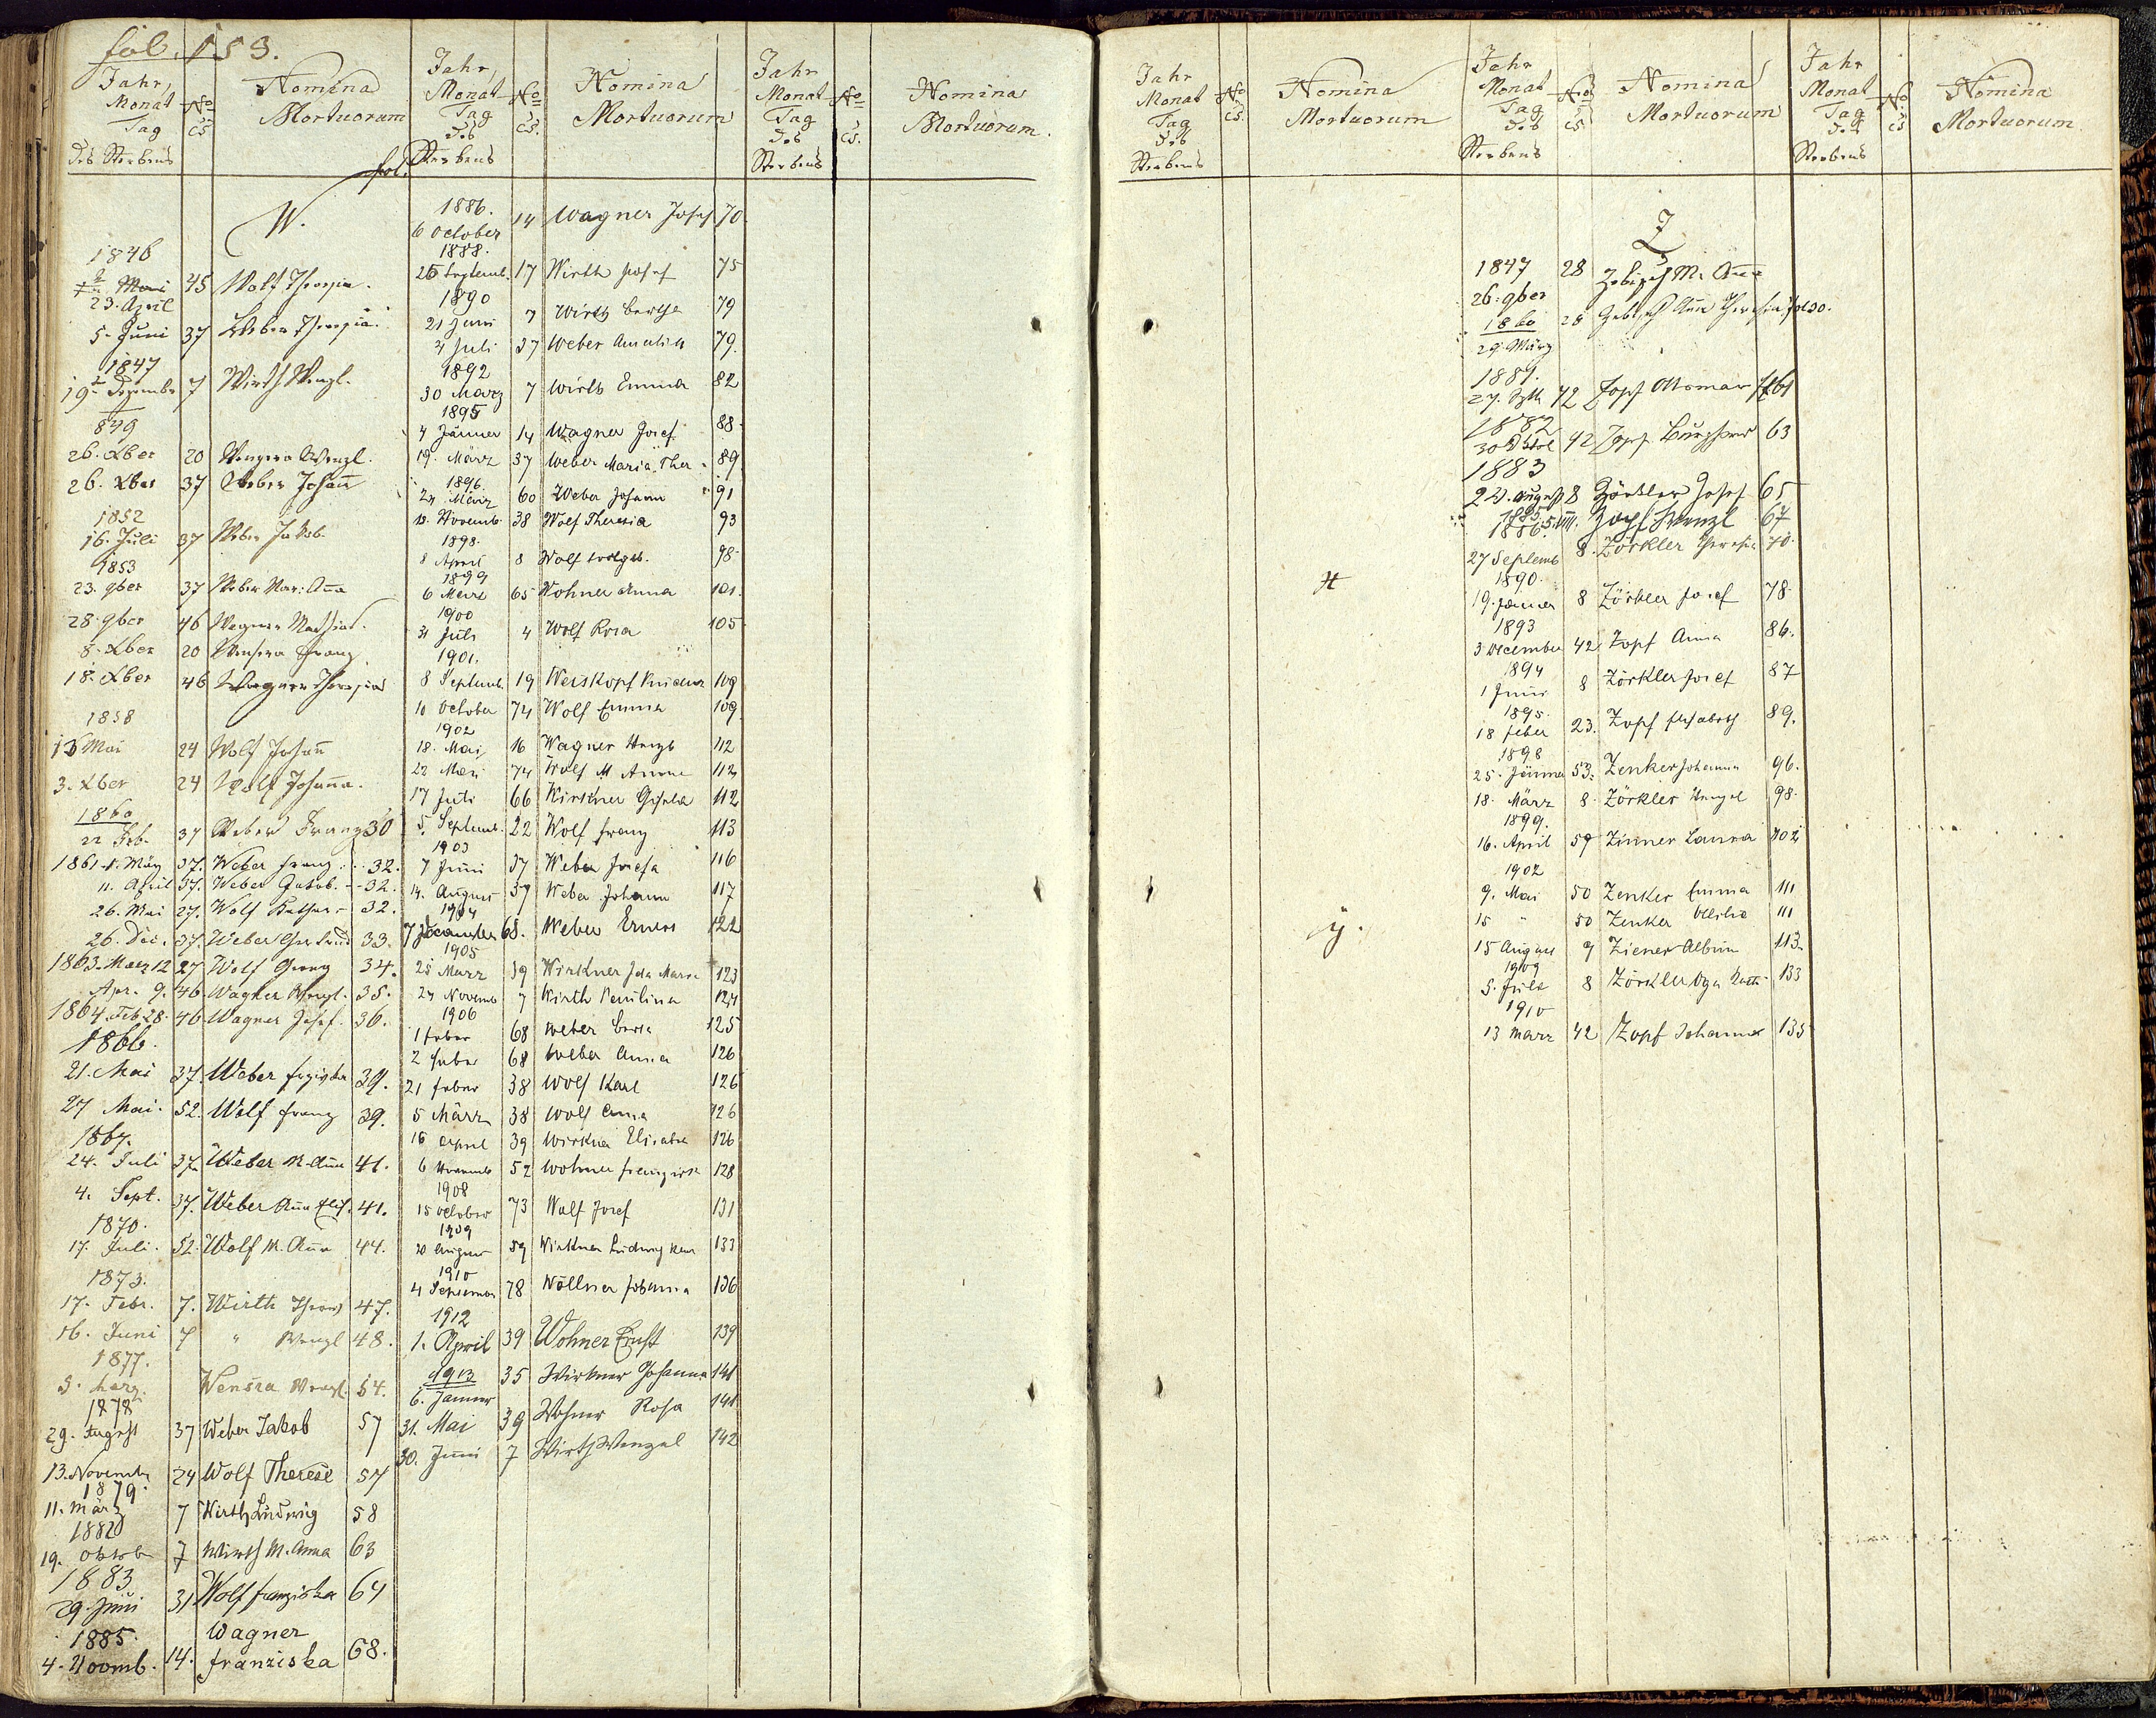 fol. 153.
Jahr, Monat Tag des Sterbens
No cs
Nomina Mortuorum
fol.
W.
1846
23. April 45 Wolf Theresia.
5. Juni 37 Weber Theresia.
1847
19t Dezember 7 Wirth Wenzl.
849
26. Xber 20 Wenzl.
26. Xber 37 Weber Johan̄
1852
16. Juli 37 Weber Jakob
1853
23. 9ber 37 Weber Mar: An̄a
28. 9ber 46 Wagner Mathias.
8. Xber 20 Franz
18. Xber 46 Wagner Theresia
1858
13 Mai 24 Wolf Johan̄
3. Xber 24 Wolf Johan̄a.
1860
22 Feb. 37 Weber Franz 30
1861 1. März 37. Weber Franz 32.
11. April 37. Weber Jakob. 32.
26. Mai 27. Wolf Kathar 32.
26. Dec. 37. Weber Gertrud 33.
1863. Maerz 12 27 Wolf Georg 34.
Apr. 9. 46 Wagner Wenzl. 35.
1864. Feb 28. 46 Wagner Josef. 36.
1866.
21. Mai 37. Weber Franziska 39.
27 Mai. 52. Wolf Franz 39.
1867.
24. Juli 37. Weber M. An̄a 41.
4. Sept. 37. Weber An̄a Elis. 41.
1870.
17. Juli. 52. Wolf M. An̄a 44.
1873.
17. Febr. 7. Wirth Theres 47.
16. Juni 7 " Wenzl 48.
1877.
3. März. Wensra Wenzl. 54.
1878
29. August 37 Weber Jakob 57
13. Novemb 24 Wolf Therese 57
1879.
11. März 7 Wirth Ludwig 58
1882
19. Oktob 7 Wirth M. Anna 63
1883
29. Juni 31 Wolf Franziska 64
1885.
4. Novmb. 14. Wagner Franziska 68.
Jahr, Monat Tag des Sterbens
No cs.
Nomina Mortuorum
1886.
6 October 14 Wagner Josef 70.
1888.
26 Septemb. 17 Wirth Josef 75
1890
21 Juni 7 Wirth Bertha 79
4 Juli 37 Weber Amalia 79.
1892
30 März 7 Wirth Emma 82
1895
4 Jänner 14 Wagner Josef 88
19. März 37 Weber Maria Ther. 89
1896.
24 März 60 Weber Johann 91
12. Novemb. 38 Wolf Theresia 93
1898.
8 April 8 Wolf 98
1899
6 März 65 Wohner Anna 101.
1900
31 Juli 4 Wolf Rosa 105
1901.
8 Septemb. 19 Weiskopf 109
10 October 74 Wolf Emma 109
1902
18. Mai 16 Wagner Wenzl 112
22 Mai 74 Wolf M Anna 112
17 Juli 66 Wirkner Gisela 112
5. Septemb. 22 Wolf Franz 113
1903
7 Juni 37 Weber Josefa 116
14. August 37 Weber Johann 117
1904
7 December 68. Weber Ernest 122
1905
25 März 39 Wirkner Ida Maria 123
24 Novemb 7 Wirth Paulina 124
1906
1 Feber 68 Weber Berta 125
2 Feber 68 Weber Anna 126
21 Feber 38 Wolf Karl 126
5 März 38 Wolf Anna 126
16 April 39 Wirkner Elisabet 126
6 Novemb 52 Wohner Franziska 128
1908
15 October 73 Wolf Josef 131
1909
20 August 59 Wirkner Ludwig Karl 133
1910
4 September 78 Wöllner Johanna 136
1912
1. April 39 Wohner Ernst 139
1913
6. Jänner 35 Wirkner Johanna 141
31. Mai 39 Wohner Rosa 141
30. Juni 7 Wirth Wenzel 142
Jahr Monat Tag des Sterbens
No cs.
Nomina Mortuorum.
Jahr Monat Tag des Sterbens
No cs.
Nomina Mortuorum
X
y.
Jahr Monat Tag des Sterbens
No cs
Nomina Mortuorum
Z
1847
26. 9ber 28 Zebisch M. An̄a
1860
29. März 28 Zebisch An̄a Theresia fol 30.
1881.
27. 42 Zopf Ottomar 61
1882
30 Oktob 42 Zopf 63
1883
22. August 8 Zörkler Josef 65
1885. 5. VIII. Zopf Wenzl 67
1886.
27 Septemb 8. Zörkler Theresia 70.
1890.
19. Jänner 8 Zörkler Josef 78
1893
3 December 42 Zopf Anna 86.
1894
1 Juni 8 Zörkler Josef 87
1895.
18 Feber 23. Zopf Elisabeth 89.
1898
25. Jänner 53. Zenker Johanna 96.
18. März 8. Zörkler Wenzel 98.
1899.
16. April 57 Zinner Laura 102
1902
9. Mai 50 Zenker Emma 111
15 " 50 Zenker Ottilie 111
15 August 9 Ziener Albin 113.
1909
5. Juli 8 Zörkler Olga 133
1910
13 März 42 Zopf Johanna 135
Jahr Monat Tag des Sterbens
No cs
Nomina Mortuorum